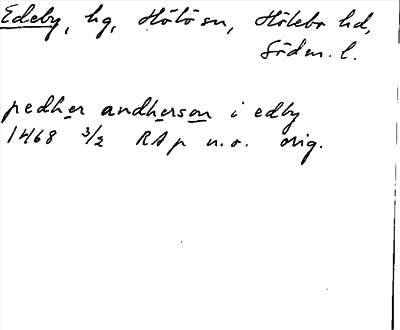 Edeby, hg, Hölö sn, Hölebo hd,
Södm. l.
pedher andherson i edby
1468 3/2 RAp n.o. orig.